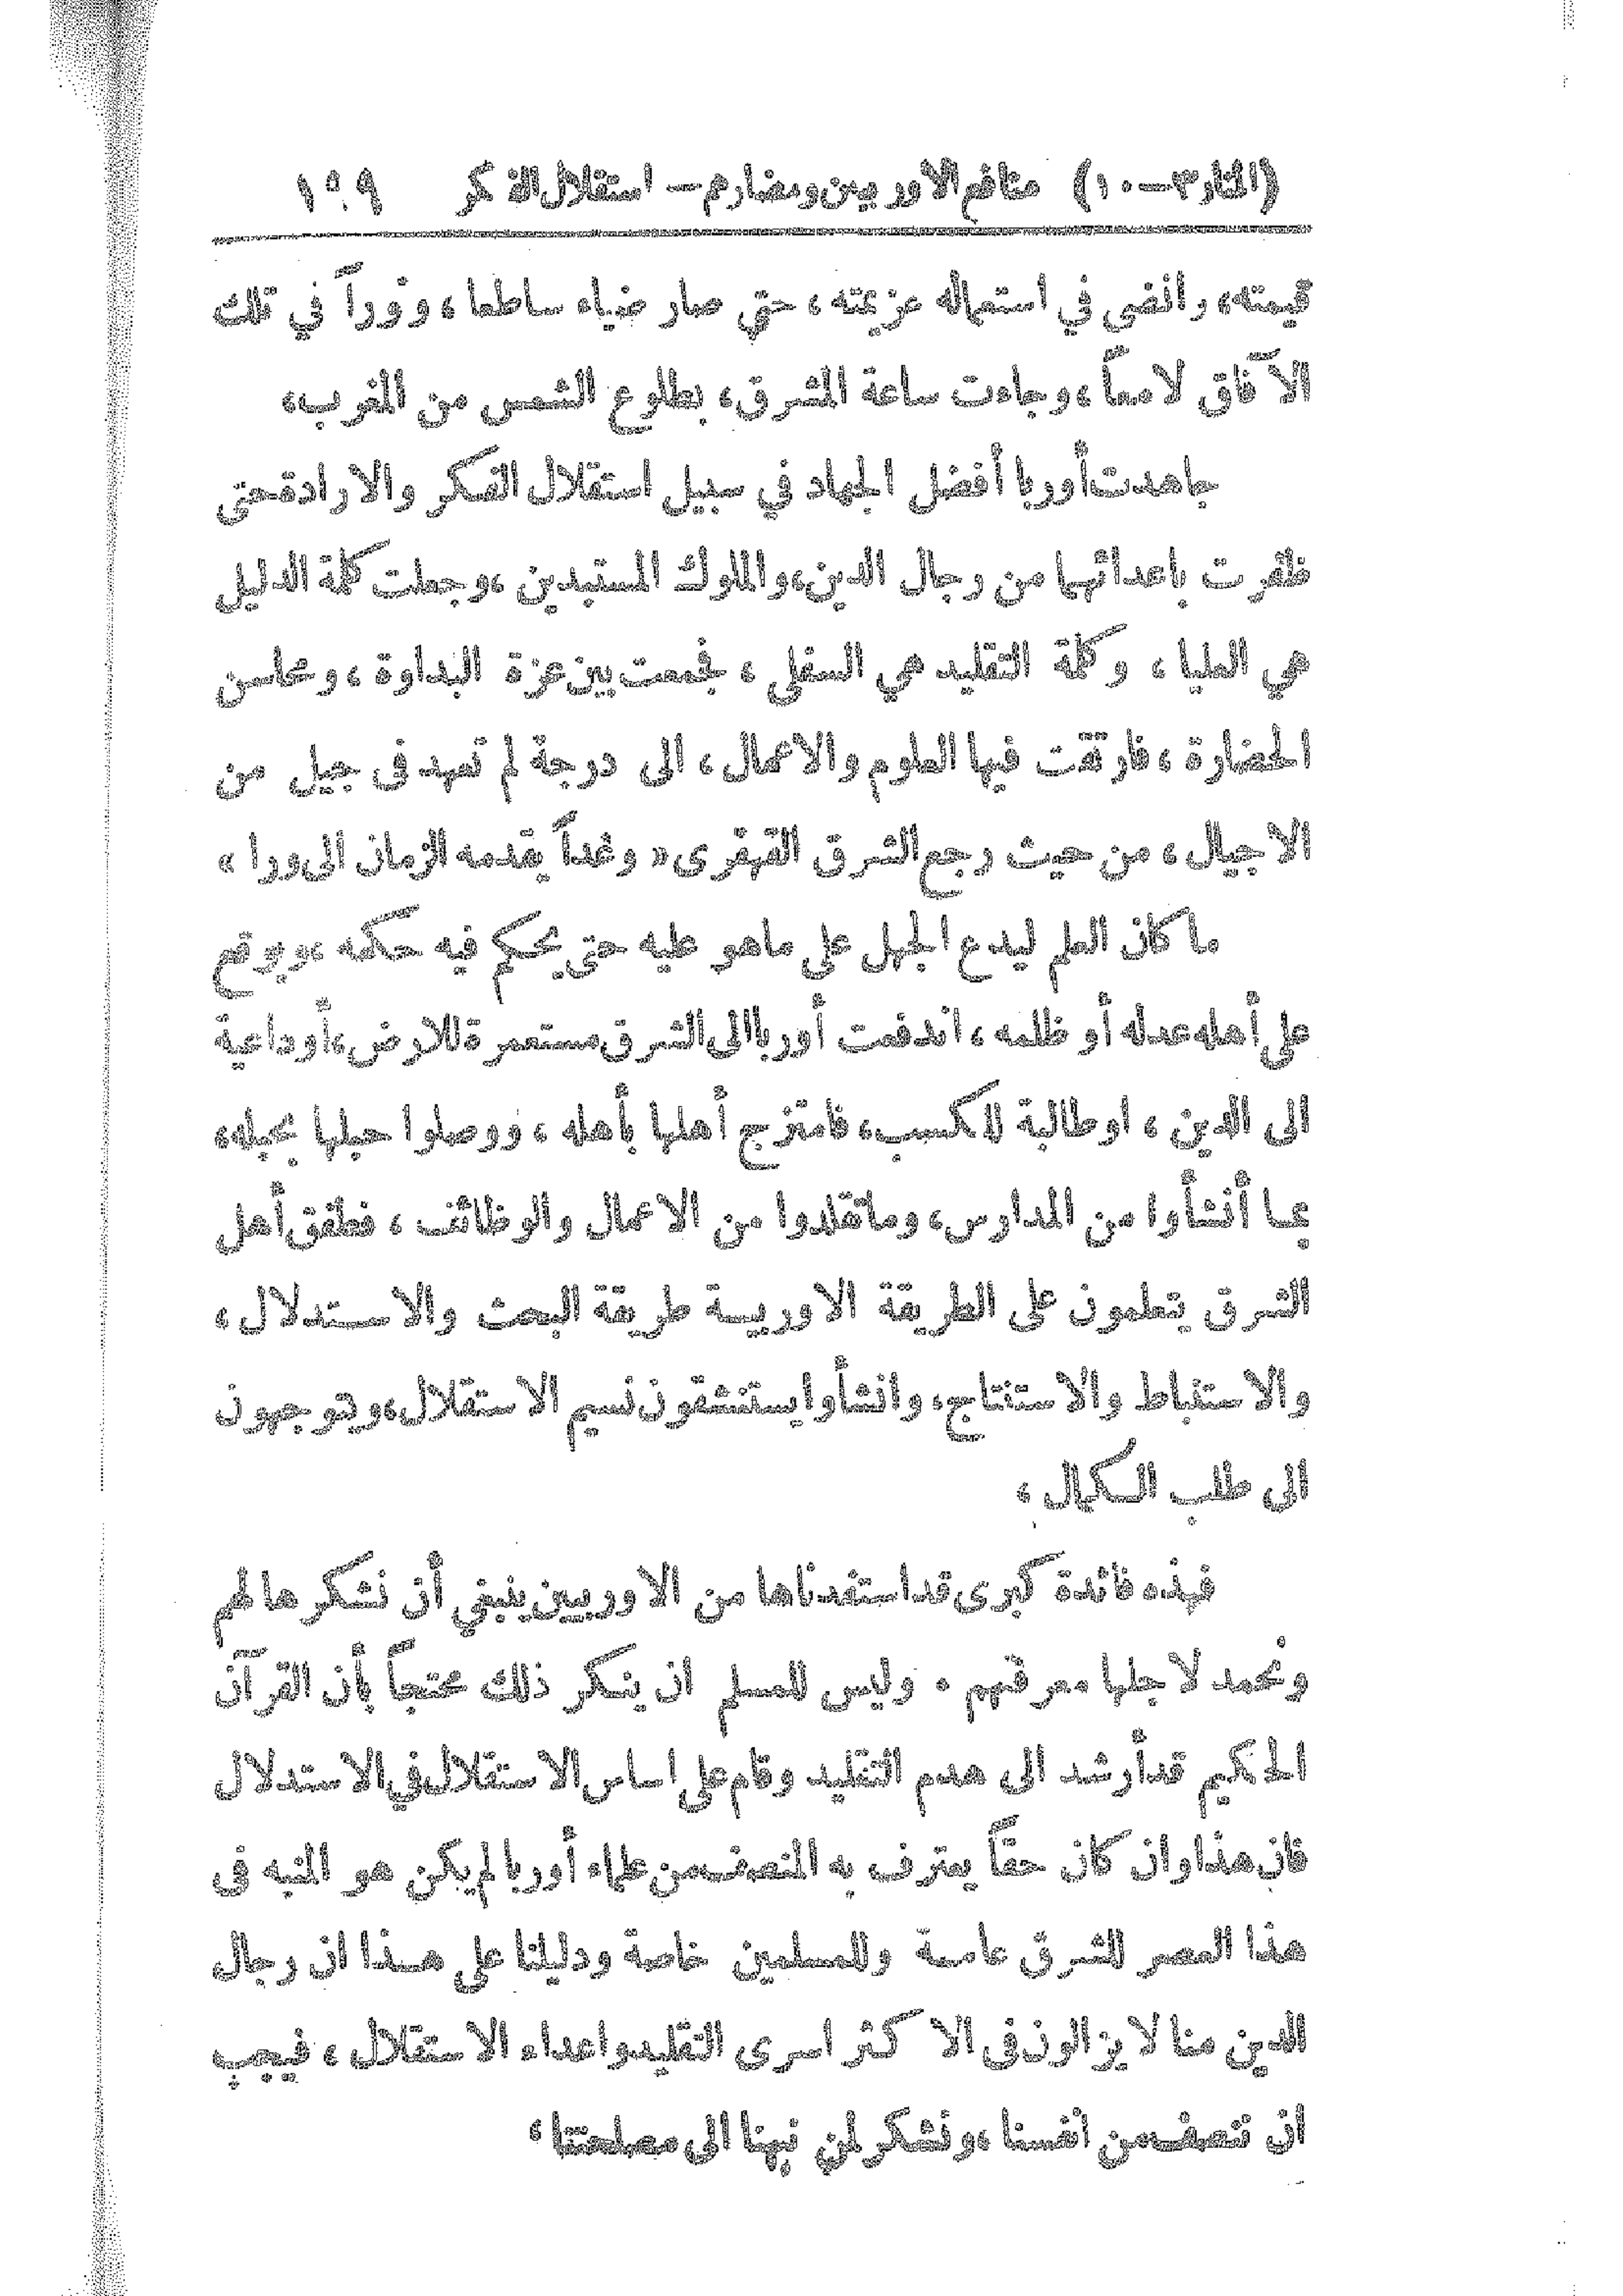 (المنار ٣ — ١٠) منافع الاوربيين ومضارهم — استقلال الفكر ١٩٩
قيمته، وانضى في استعماله عزيمته، حتى صار ضياء ساطعا، ونوراً في تلك
الآفاق لامعاً، وجاءت ساعة المشرق، بطلوع الشمس من المغرب،
جاهدت أوربا أفضل الجهاد في سبيل استقلال الفكر والارادة حتى
ظفرت باعدائها من رجال الدين، والملوك المستبدين، وجعلت كلمة الدليل
هي العليا، وكلمة التقليد هي السفلى، فجمعت بين عزة البداوة، ومحاسن
الحضارة، فارتقت فيها العلوم والاعمال، الى درجة لم تعهد في جيل من
الاجيال، من حيث رجع الشرق القهقرى «وغداً يقدمه الزمان الى ورا»
ما كان العلم ليدع الجهل على ماهو عليه حتى يحكم فيه حكمه، ويوقع
على أهله عدله أو ظلمه، اندفعت أوربا الى الشرق مستعمرة للارض، أو داعية
الى الدين، او طالبة للكسب، فامتزج أهلها بأهله، ووصلوا حبلها بحبله،
بما أنشأوا من المدارس، وما تقلدوا من الاعمال والوظائف، فطفق أهل
الشرق يتعلمون على الطريقة الاوربية طريقة البحث والاستدلال،
والاستنباط والاستنتاج، وانشأوا يستنشقون نسيم الاستقلال، ويتوجهون
الى طلب الكمال،
فهذه فائدة كبرى قد استفدناها من الاوربيين ينبغي أن نشكرها لهم
ونحمد لاجلها معرفتهم . وليس للمسلم ان ينكر ذلك محتجاً بأن القرآن
الحكيم قد أرشد الى هدم التقليد وقام على اساس الاستقلال في الاستدلال
فان هذا وان كان حقاً يعترف به المنصف من علماء أوربا لم يكن هو المنبه في
هذا العصر للشرق عامة وللمسلمين خاصة ودليلنا على هذا ان رجال
الدين منا لا يزالون في الاكثر اسرى التقليد واعداء الاستقلال، فيجب
ان ننصف من انفسنا، ونشكر لمن نبهنا الى مصلحتنا،